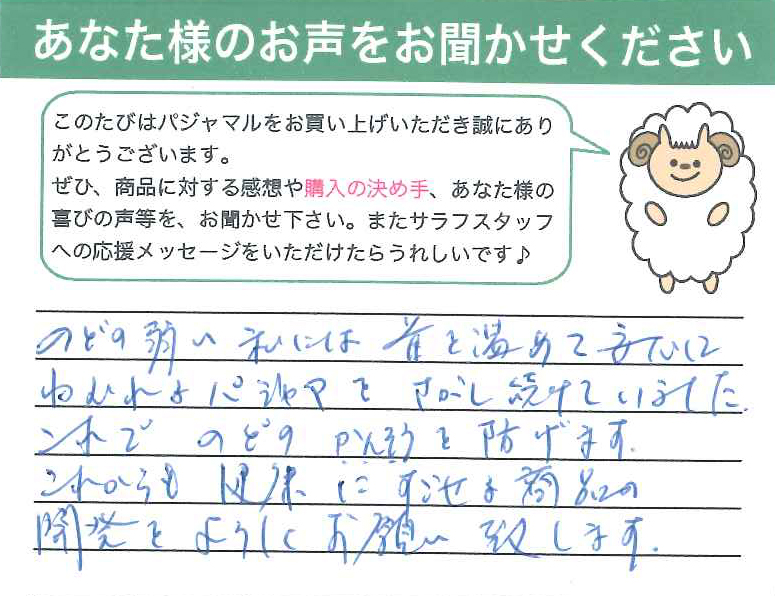 あなた様のお声をお聞かせください
このたびはパジャマルをお買い上げいただき誠にあり
がとうございます。
ぜひ、商品に対する感想や購入の決め手、あなた様の
喜びの声等を、お聞かせ下さい。またサラフスタッフ
への応援メッセージをいただけたらうれしいです♪
のどの弱い私には首を温めて
ねむれるパジャマをさがし続けていました。
これでのどのかんそうを防げます。
これからも健康にすごせる商品の
開発をよろしくお願い致します。